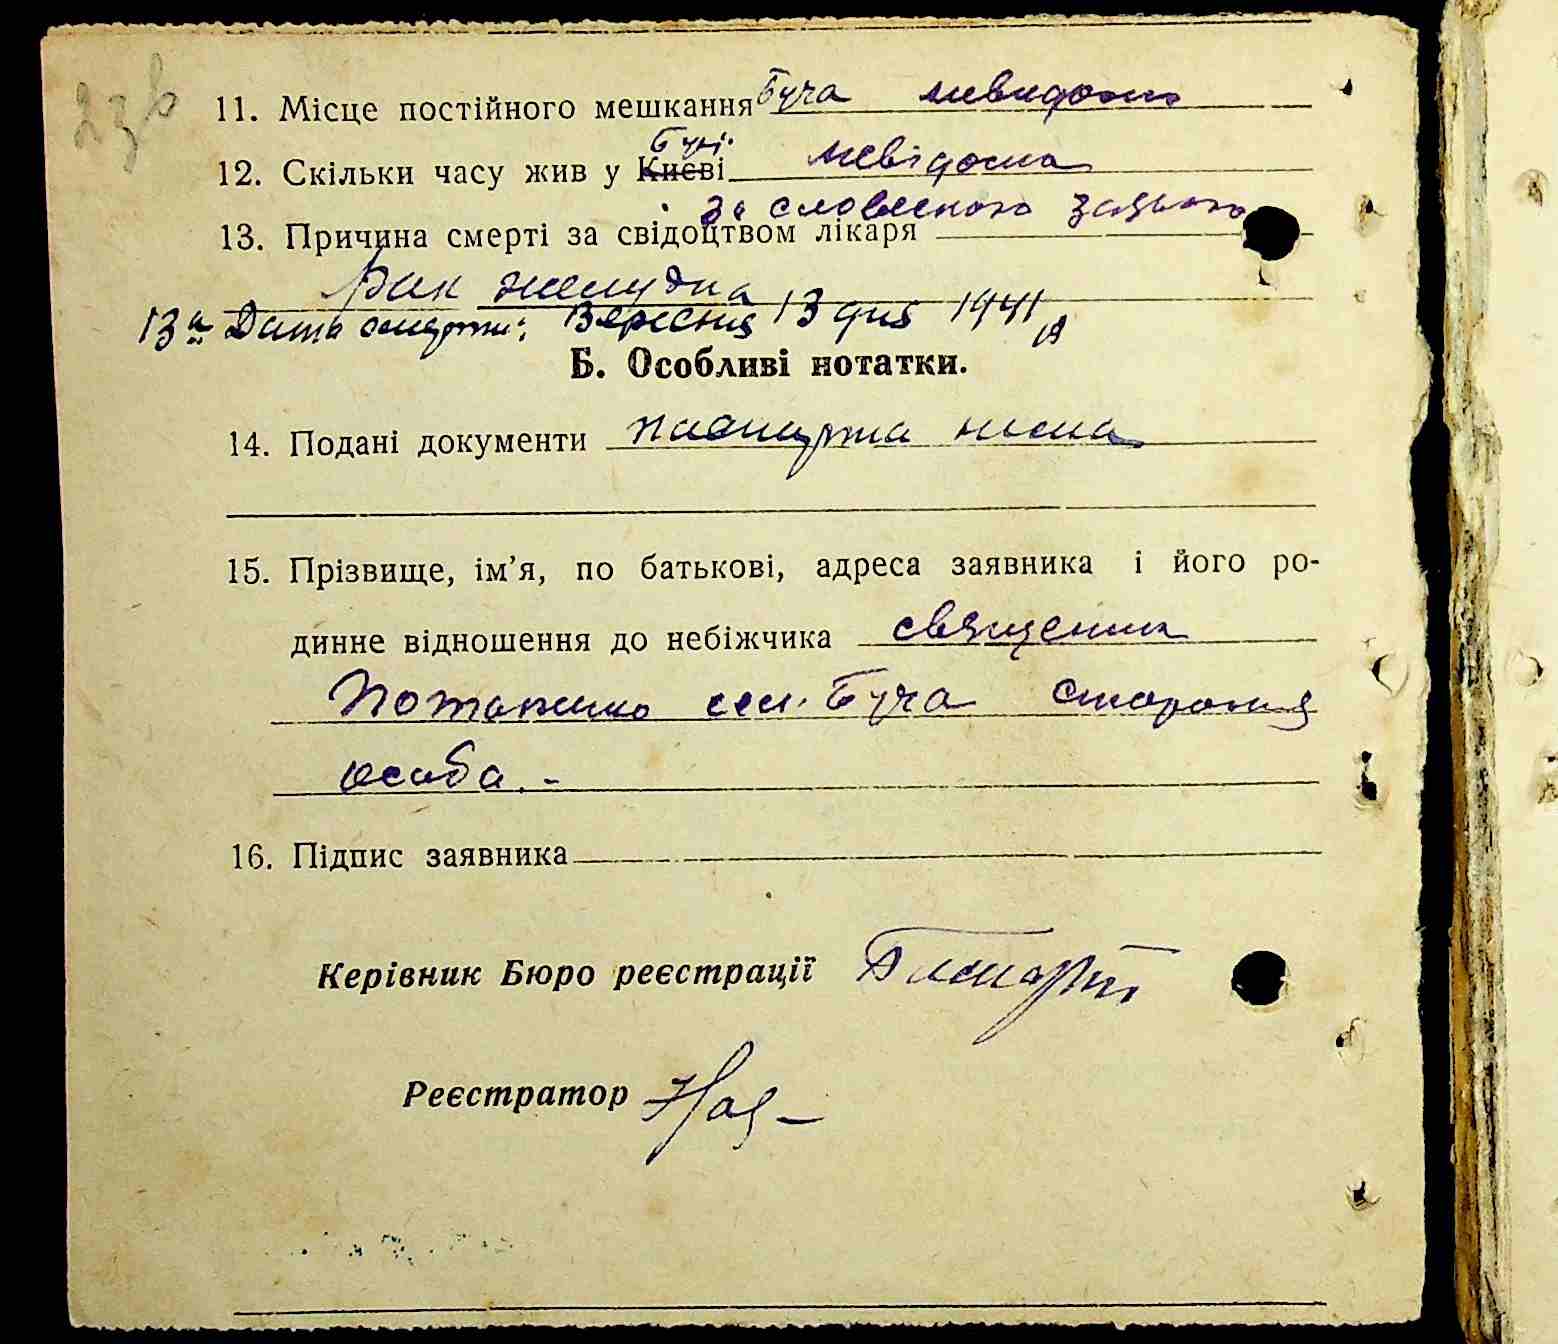 23в
11. Місце постійного мешкання Буча невидомо
Бучі
12. Скільки часу жив у Києві невідома
за словесною заявою
13. Причина смерті за свідоцтвом лікаря
Рак желудка
13а Дата смерти: Вересня 13 дня 1941 р
Б. Особливі нотатки.
14. Подані документи паспорта нема
15. Прізвище, ім’я, по батькові, адреса заявника і його ро-
динне відношення до небіжчика священик
сел. Буча стороння
особа. -
16. Підпис заявника
Керівник Бюро реєстрації
Реєстратор